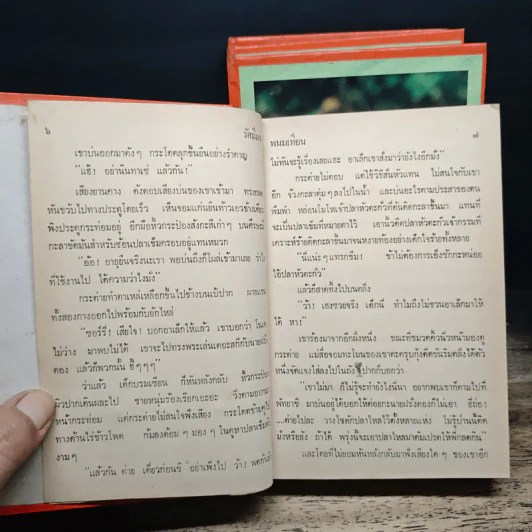 ๖
รัศมี
เขาบ่นออกมาดังๆ กระโดดลุกขึ้นยืนอย่างรำคาญ
"แฮ้! อย่านันทาเซ่ แล้วกัน!"
เสียงยานคาง ดังตอบเสียงบ่นของเขาเข้ามา
หันขวับไปทางประตูโดยเร็ว เห็นจอมแก่นเท้าเอวข้าง
พิงประตูกระท่อมอยู่ อีกมือหิ้วกระป๋องสังกะสีเก่าๆ บนศีรษะ
กะลาซี่ต้มสำหรับช้อนปลาเข็มครอบอยู่แทนหมวก
"อ้อ! อายุยืนจริงนะเรา พอบ่นถึงก็โผล่เข้ามาเลย
ที่ใช้งานไป ได้ความว่าไงมั่ง"
กระต่ายทำตาเหล่เหลือกขึ้นไปข้างบนเบ้ปาก
ทั้งสองกางออกไปพร้อมกับยักไหล่
"ซอร์รี่! เสียใจ! บอกอาเล็กให้แล้ว เขาบอกว่า
ไม่ว่าง มาพบไม่ได้ เขาจะไปทรงพระเล่นเดอะสกีกับ
ตอง แล้วก็พวกนั้น ฮี้ๆๆๆ"
ว่าแล้ว เด็กบรมเซอน ก็หันหลังกลับ หิ้วกระป๋อง
ผิวปากเดินผละไป ชายหนุ่มร้องเรียกเอะอะ วิ่งตามออก
หน้ากระท่อม แต่กระต่ายไม่สนใจฟังเสียง กระโดดข้าม
ทางด้านไร่ข้าวโพด ก้มลงด้อมๆ มองๆ ในคูหาปลาเข็ม
งามๆ
"แล้วกัน ต่าย เดี๋ยวก่อนซิ อย่าเพิ่งไป ว้า!
พนมเทียน
๗
ไม่ทันจะรู้เรื่องเลยแฮะ อาเล็กเขาสั่งมาว่ายังไงอีกมั่ง"
กระต่ายไม่ตอบ แต่ใช้วิธีสั่นหัวแทน ไม่สนใจกับเขา
อีก จ้วงกะลาตุ่มๆ ลงไปในน้ำ และบ่นอะไรตามประสาของตน
พึมพำ หล่อนโมโหเจ้าปลาหัวตะกั่วที่ดันติดกะลาขึ้นมา แทนที่
จะเป็นปลาเข็มที่หมายตาไว้ เอานิ้วดีดปลาหัวตะกั่วเจ้ากรรมที่
เคราะห์ร้ายติดกะลาขึ้นมาจนหงายท้องอย่างเด็กใจร้ายทั้งหลาย
"นี่แน่ะๆแทรกซึม! ข้าไม่ต้องการเอ็งซักกะหน่อย
ไอ้ปลาหัวตะกั่ว"
แล้วก็สาดทิ้งไปบนตลิ่ง
"ว้า! เฮงซวยจริง เด็กนี่ ทำไมถึงไม่ชวนอาเล็กมาให้
ได้ หา!"
เขาร้องมาจากอีกฝั่งหนึ่ง ขณะที่ขมวดคิ้วนิ่วหน้ามองดู
กระต่าย แม่สื่อจอมทะโมนของเขาตะครุบกุ้งดีดขันริมตลิ่งได้ตัว
หนึ่งจัดแจงใส่ลงไปในถัง ปากก็บอกว่า
"เขาไม่มา ก็ไม่รู้จะทำยังไงนี่นา อยากพบเขาก็ตามไปที่
พัทยาซิ มาบ่นอยู่ได้บอกให้ต่อยกะนายฝรั่งดองก็ไม่เอา อี้ถ่อ!
...ต่ายไปละ วางใจดักปลาไหลไว้ตั้งหลายแห่ง ไม่รู้ป่านนี้ติด
มั่งหรือยัง ถ้าได้ พรุ่งนี้จะเอาปลาไหลมาต้มเปรตให้พี่กลดกิน"
และโดยที่ไม่ยอมหันหลังกลับมาฟังเสียงใดๆ ของเขาอีก